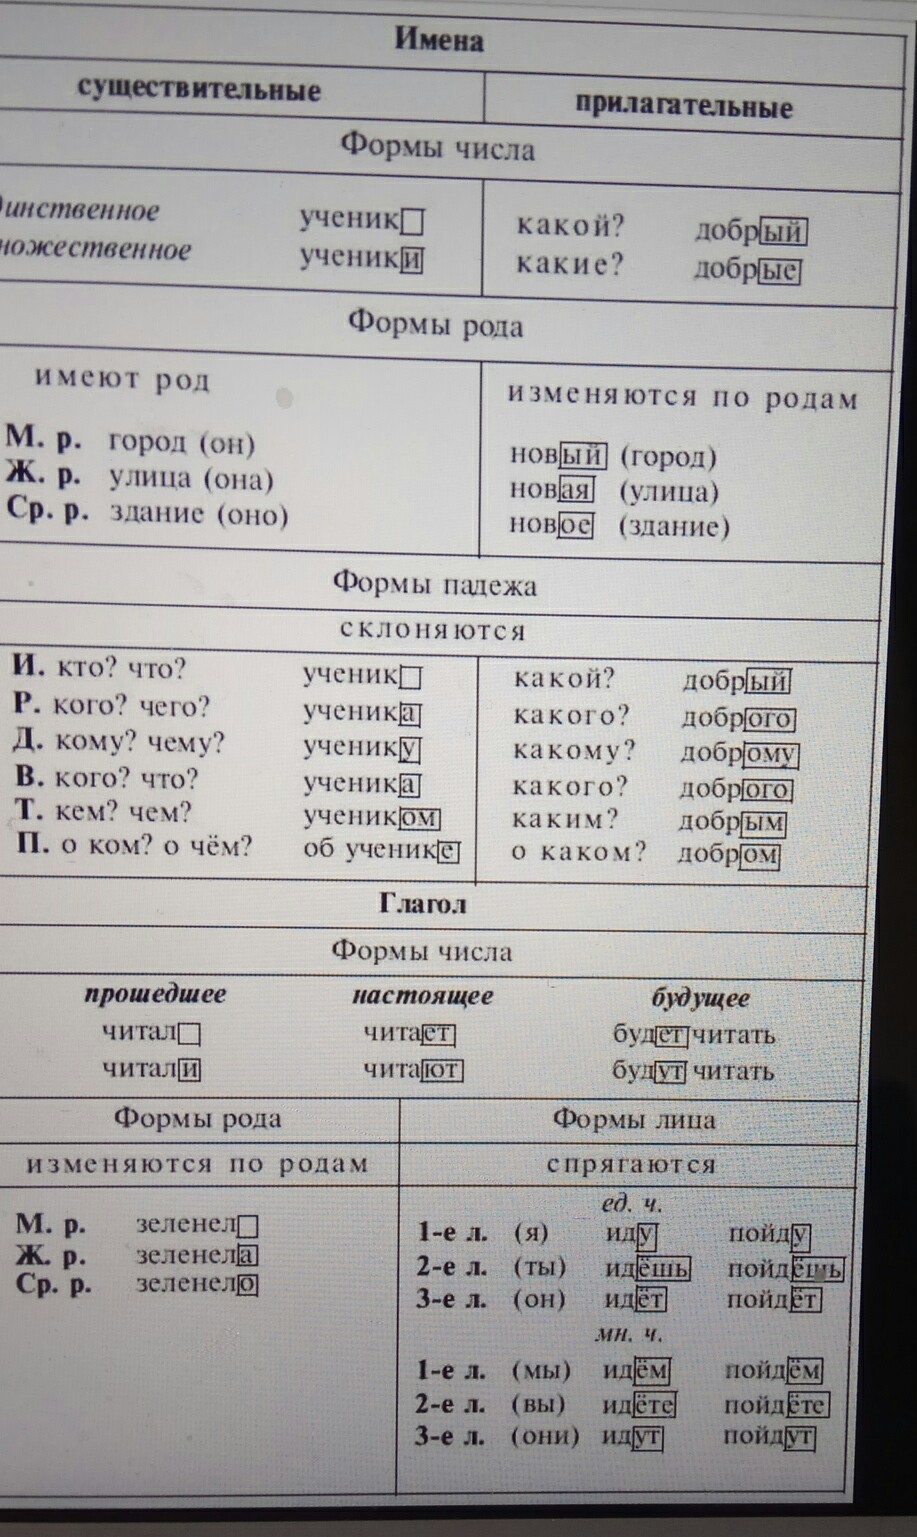 Имена
существительные прилагательные
Формы числа
динственное ученик какой? добрый
ножественное ученики какие? добрые
Формы рода
имеют род изменяются по родам
М. р. город (он) новый (город)
Ж. р. улица (она) новая (улица)
Ср. р. здание (оно) новое (здание)
Формы падежа
склоняются
И. кто? что? ученик какой? добрый
Р. кого? чего? ученика какого? доброго
Д. кому? чему? ученику какому? доброму
В. кого? что? ученика какого? доброго
Т. кем? чем? учеником каким? добрым
П. о ком? о чём? об ученике о каком? добром
Глагол
Формы числа
прошедшее настоящее будущее
читал читает будет читать
читали читают будут читать
Формы рода Формы лица
изменяются по родам спрягаются
ед. ч.
М. р. зеленел 1-е л. (я) иду пойду
Ж. р. зеленела 2-е л. (ты) идёшь пойдёшь
Ср. р. зеленело 3-е л. (он) идёт пойдёт
мн. ч.
1-е л. (мы) идём пойдём
2-е л. (вы) идёте пойдёте
3-е л. (они) идут пойдут